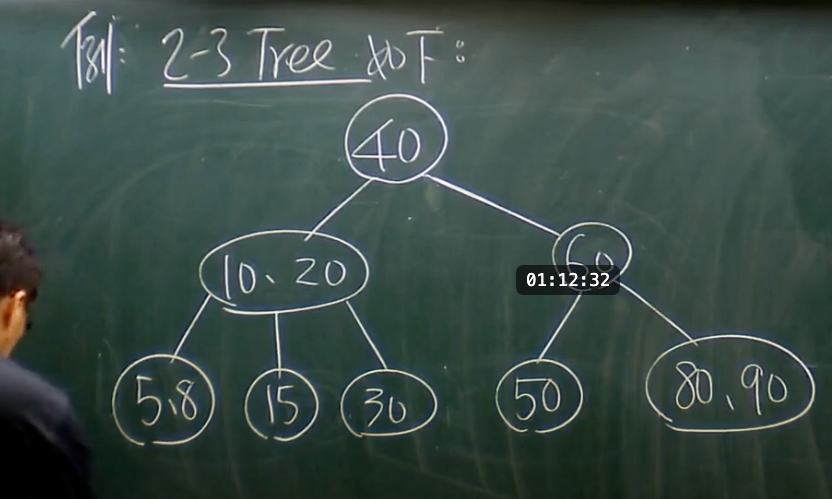 例: 2-3 Tree 如下:
40
10、20 60
01:12:32
5、8 15 30 50 80、90